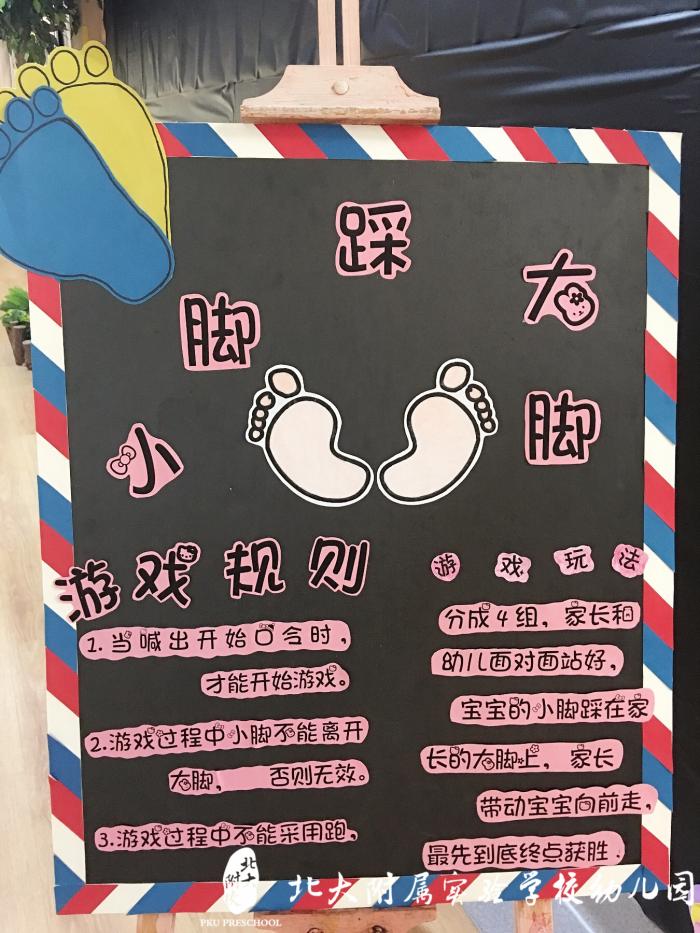 小脚踩大脚
游戏规则
1.当喊出开始口令时，
才能开始游戏。
2.游戏过程中小脚不能离开
大脚， 否则无效。
3.游戏过程中不能采用跑，
游戏玩法
分成4组，家长和
幼儿面对面站好，
宝宝的小脚踩在家
长的大脚上， 家长
带动宝宝向前走，
最先到底终点获胜．
北大附属实验学校幼儿园
PKU PRESCHOOL